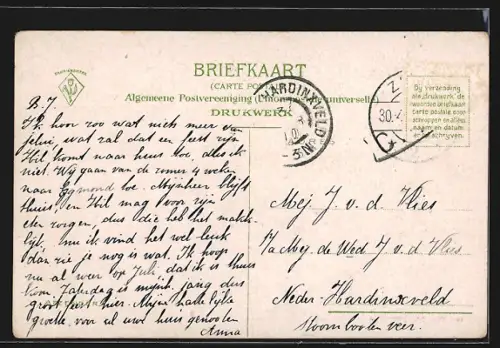 BRIEFKAART
(CARTE POSTALE)
Algemeene Postvereeniging (Union postale universelle)
DRUKWERK
HARDINXVELD
Bij verzending
als drukwerk de
woorden briefkaart
carte postale
doorschrappen en alleen
naam en datum
schrijven.
30.
B. J
Ik hoor zoo wat niets meer van
jelui, wat zal dat en feest zijn
Hil komt naar huis toe, dus ik
niet. Wij gaan van de zomer 4 weken
naar Egmond toe. Mijnheer blijft
thuis, en Hil mag voor zijn
eten zorgen, dus die heb het makke-
lijk, nu ik vind het wel leuk
dan zie je nog is wat. Ik hoop
nu al weer op Juli, dat ik is thuis
kom Zaterdag is mijnh. jarig dus
groot feest hier. Mijn hartelijke
groete voor al uw huisgenooten
Anna
Mej. J. v. d. Vlies
p/a Mej. de Wed. J v. d Vlies
Neder-Hardinxveld
Stoombooten veer.